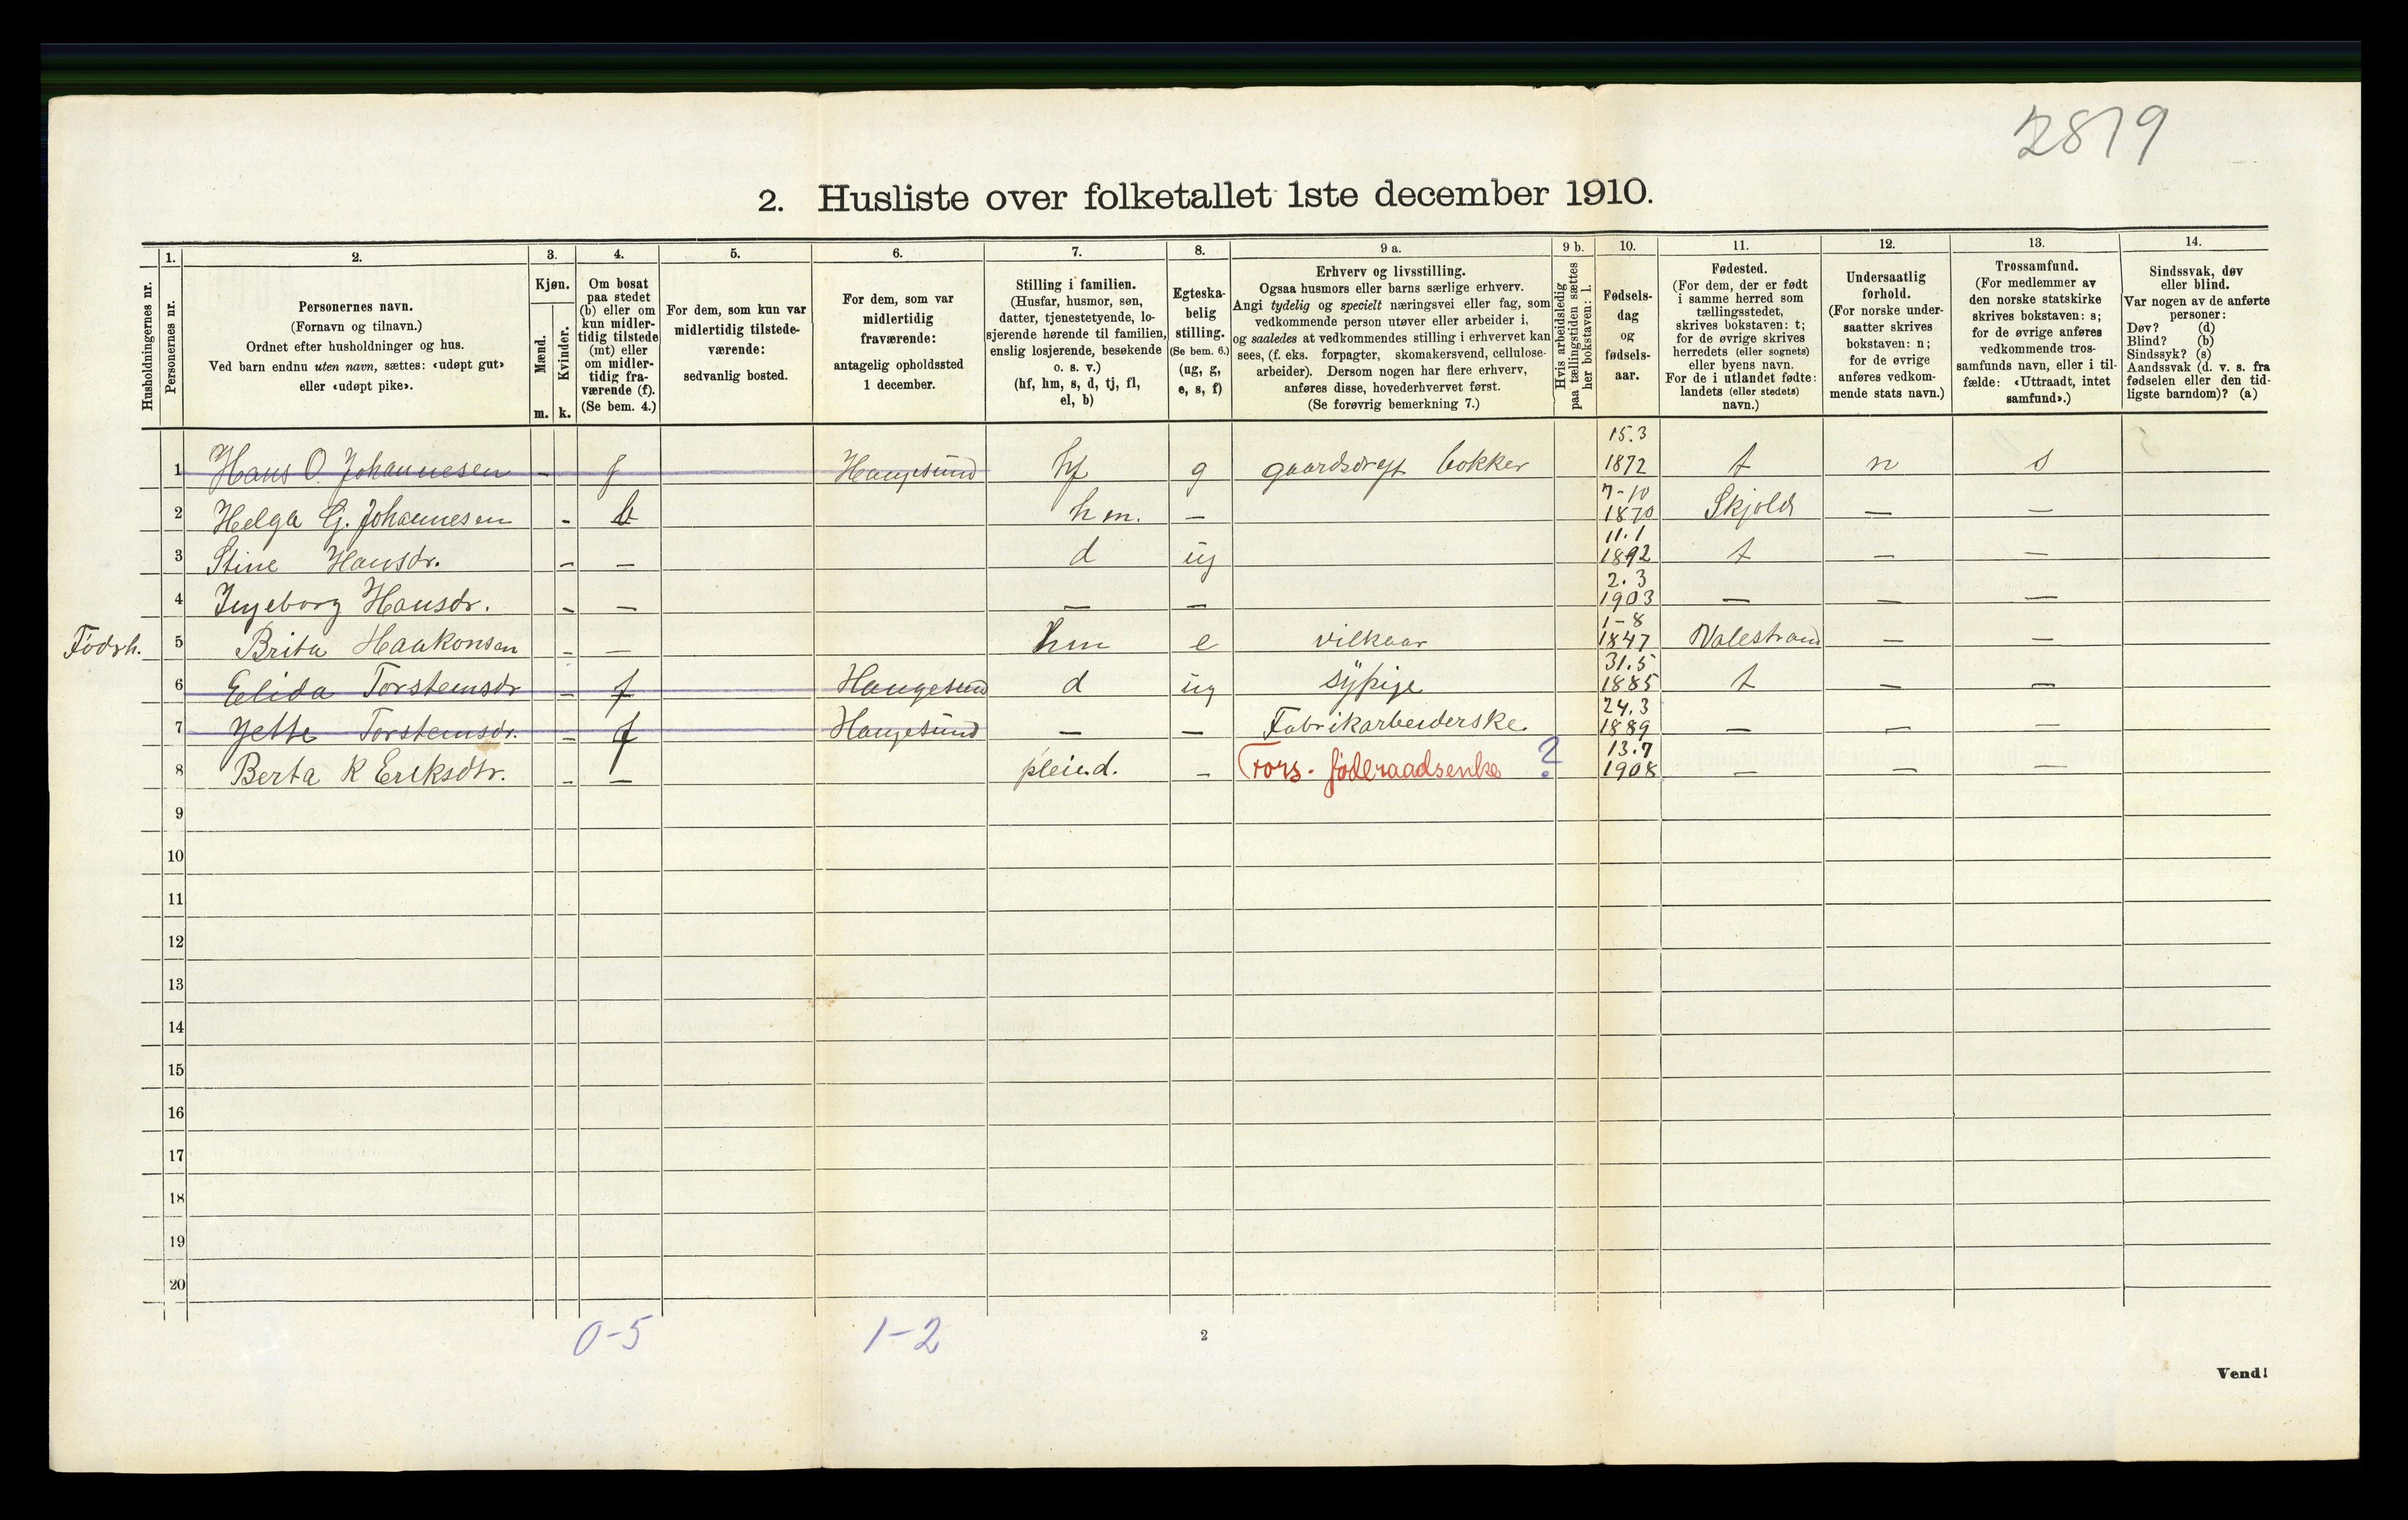 2879
2. Husliste over folketallet 1ste december 1910.
Husholdningernes nr.
1. Personernes nr.
2. Personernes navn. (Fornavn og tilnavn.) Ordnet efter husholdninger og hus. Ved barn endnu uten navn, sættes: «udøpt gut» eller «udøpt pike».
3. Kjøn. Mænd. m. Kvinder. k.
4. Om bosat paa stedet (b) eller om kun midlertidig tilstede (mt) eller om midlertidig fraværende (f). (Se bem. 4.)
5. For dem, som kun var midlertidig tilstedeværende: sedvanlig bosted.
6. For dem, som var midlertidig fraværende: antagelig opholdssted 1 december.
7. Stilling i familien. (Husfar, husmor, søn, datter, tjenestetyende, losjerende hørende til familien, enslig losjerende, besøkende o. s. v.) (hf, hm, s, d, tj, fl, el, b)
8. Egteskabelig stilling. (Se bem. 6.) (ug, g, e, s, f)
9 a. Erhverv og livsstilling. Ogsaa husmors eller barns særlige erhverv. Angi tydelig og specielt næringsvei eller fag, som vedkommende person utøver eller arbeider i, og saaledes at vedkommendes stilling i erhvervet kan sees, (f. eks. forpagter, skomakersvend, cellulosearbeider). Dersom nogen har flere erhverv, anføres disse, hovederhvervet først. (Se forøvrig bemerkning 7.)
9 b. Hvis arbeidsledig paa tællingstiden sættes her bokstaven: l.
10. Fødselsdag og fødselsaar.
11. Fødested. (For dem, der er født i samme herred som tællingsstedet, skrives bokstaven: t; for de øvrige skrives herredets (eller sognets) eller byens navn. For de i utlandet fødte: landets (eller stedets) navn.)
12. Undersaatlig forhold. (For norske undersaatter skrives bokstaven: n; for de øvrige anføres vedkommende stats navn.)
13. Trossamfund. (For medlemmer av den norske statskirke skrives bokstaven: s; for de øvrige anføres vedkommende trossamfunds navn, eller i tilfælde: «Uttraadt, intet samfund».)
14. Sindssvak, døv eller blind. Var nogen av de anførte personer: Døv? (d) Blind? (b) Sindssyk? (s) Aandssvak (d. v. s. fra fødselen eller den tidligste barndom)? (a)
1 Hans O. Johannesen - f Haugesund hf g gaardsdrift bøkker 15.3 1872 t n s
2 Helga G. Johannesen - b hm. — 7-10 1870 Skjold — —
3 Stine Hansdr. - — d ug 11.1 1892 t — —
4 Ingeborg Hansdr. - — — — 2.3 1903 — — —
Födrh. 5 Brita Haakonsen - — hm e vilkaar 1-8 1847 Valestrand — —
6 Elida Torsteinsdr - f Haugesund d ug sypige 31.5 1885 t — —
7 Jette Torsteinsdr. - f Haugesund — — Fabrikarbeiderske. 24.3 1889 — — —
8 Berta K Eriksdtr. - — pleied. — Fors. föderaadsenke ? 13.7 1908 — — —
9
10
11
12
13
14
15
16
17
18
19
20
0-5 1-2
2
Vend!